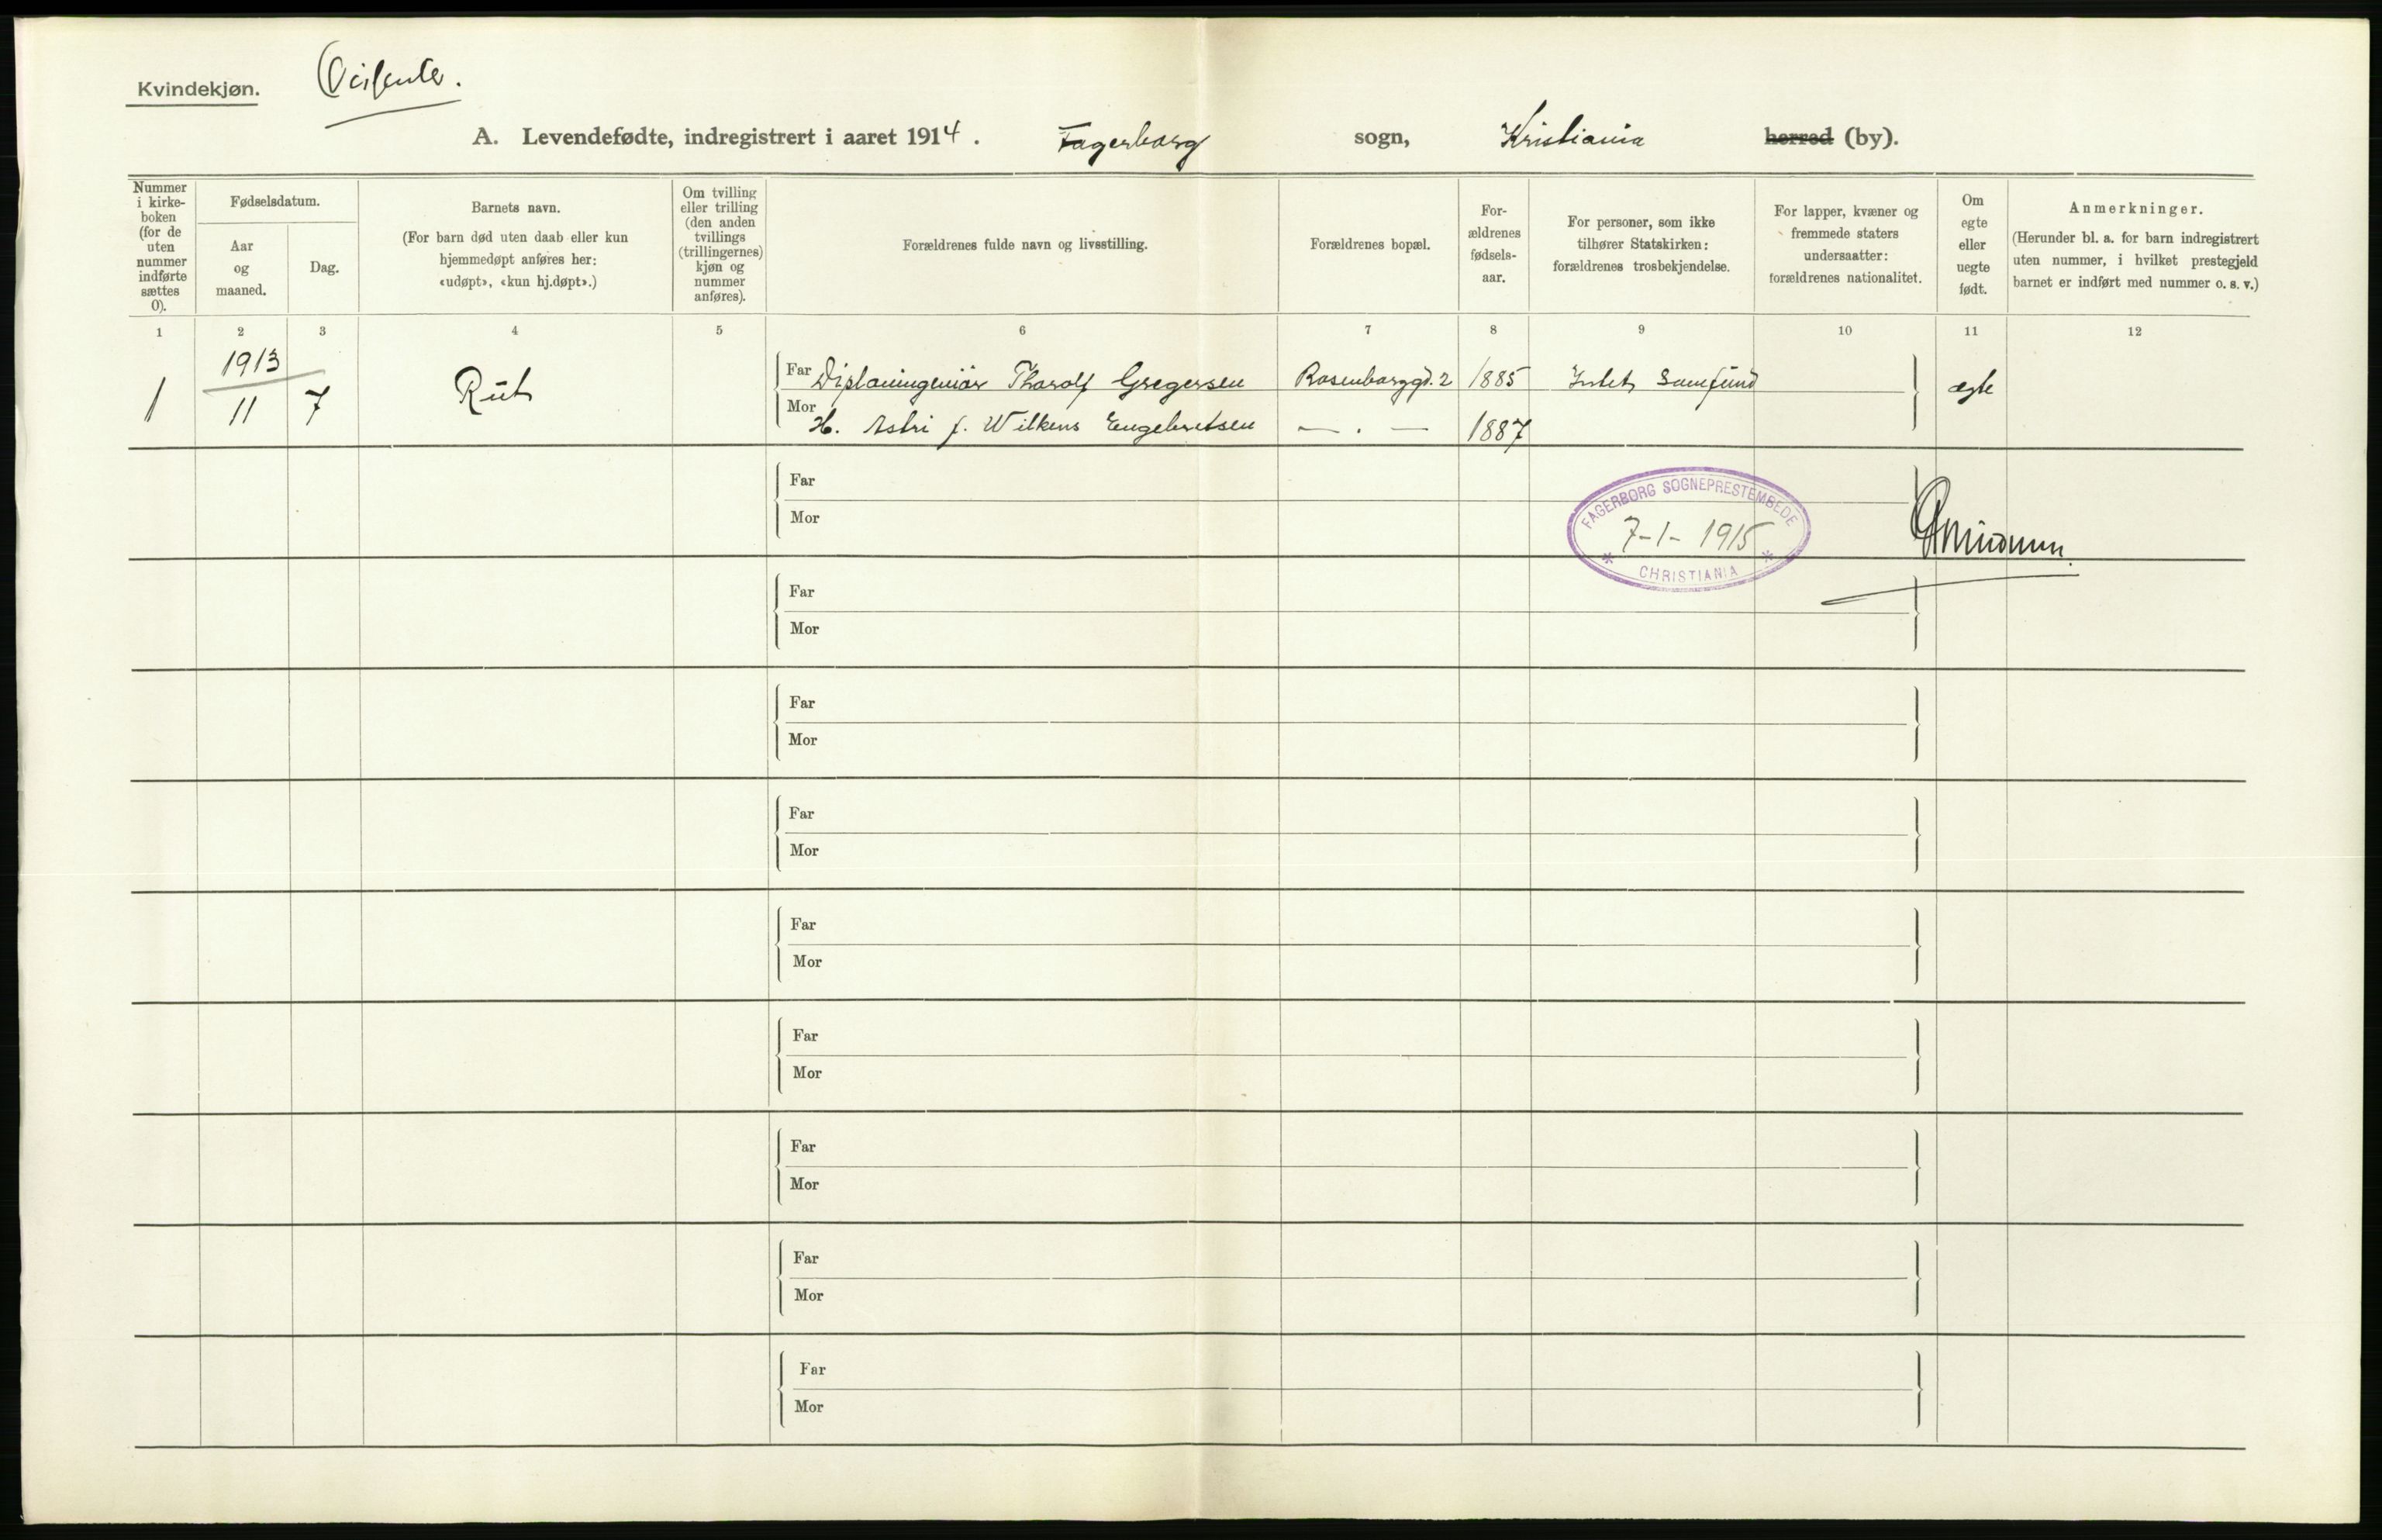 Kvindekjøn.
A. Levendefødte, indregistrert i aaret 1914. Fagerborg sogn, Kristiania herred (by).
Nummer i kirke-boken (for de uten nummer indførte sættes 0).
Fødselsdatum.
Aar og maaned.
Dag.
Barnets navn.
(For barn død uten daab eller kun hjemmedøpt anføres her: «udøpt», «kun hj.døpt».)
Om tvilling eller trilling (den anden tvillings (trillingernes) kjøn og nummer anføres).
Forældrenes fulde navn og livsstilling.
Forældrenes bopæl.
For-ældrenes fødsels-aar.
For personer, som ikke tilhører Statskirken: forældrenes trosbekjendelse.
For lapper, kvæner og fremmede staters undersaatter: forældrenes nationalitet.
Om egte eller uegte født.
Anmerkninger.
(Herunder bl. a. for barn indregistrert uten nummer, i hvilket prestegjeld barnet er indført med nummer o. s. v.)
1 2 3 4 5 6 7 8 9 10 11 12
1 1913 11 7 Rut
Far Diplomingeniör Tharolf Gregersen Rosenborggd. 2 1885 Intet Samfund ægte
Mor H. Astri f. Wilkens Engebretsen — . — 1887
Far
Mor
FAGERBORG SOGNEPRESTEMBEDE
7-1-1915
* CHRISTIANIA *
Far
Mor
Far
Mor
Far
Mor
Far
Mor
Far
Mor
Far
Mor
Far
Mor
Far
Mor